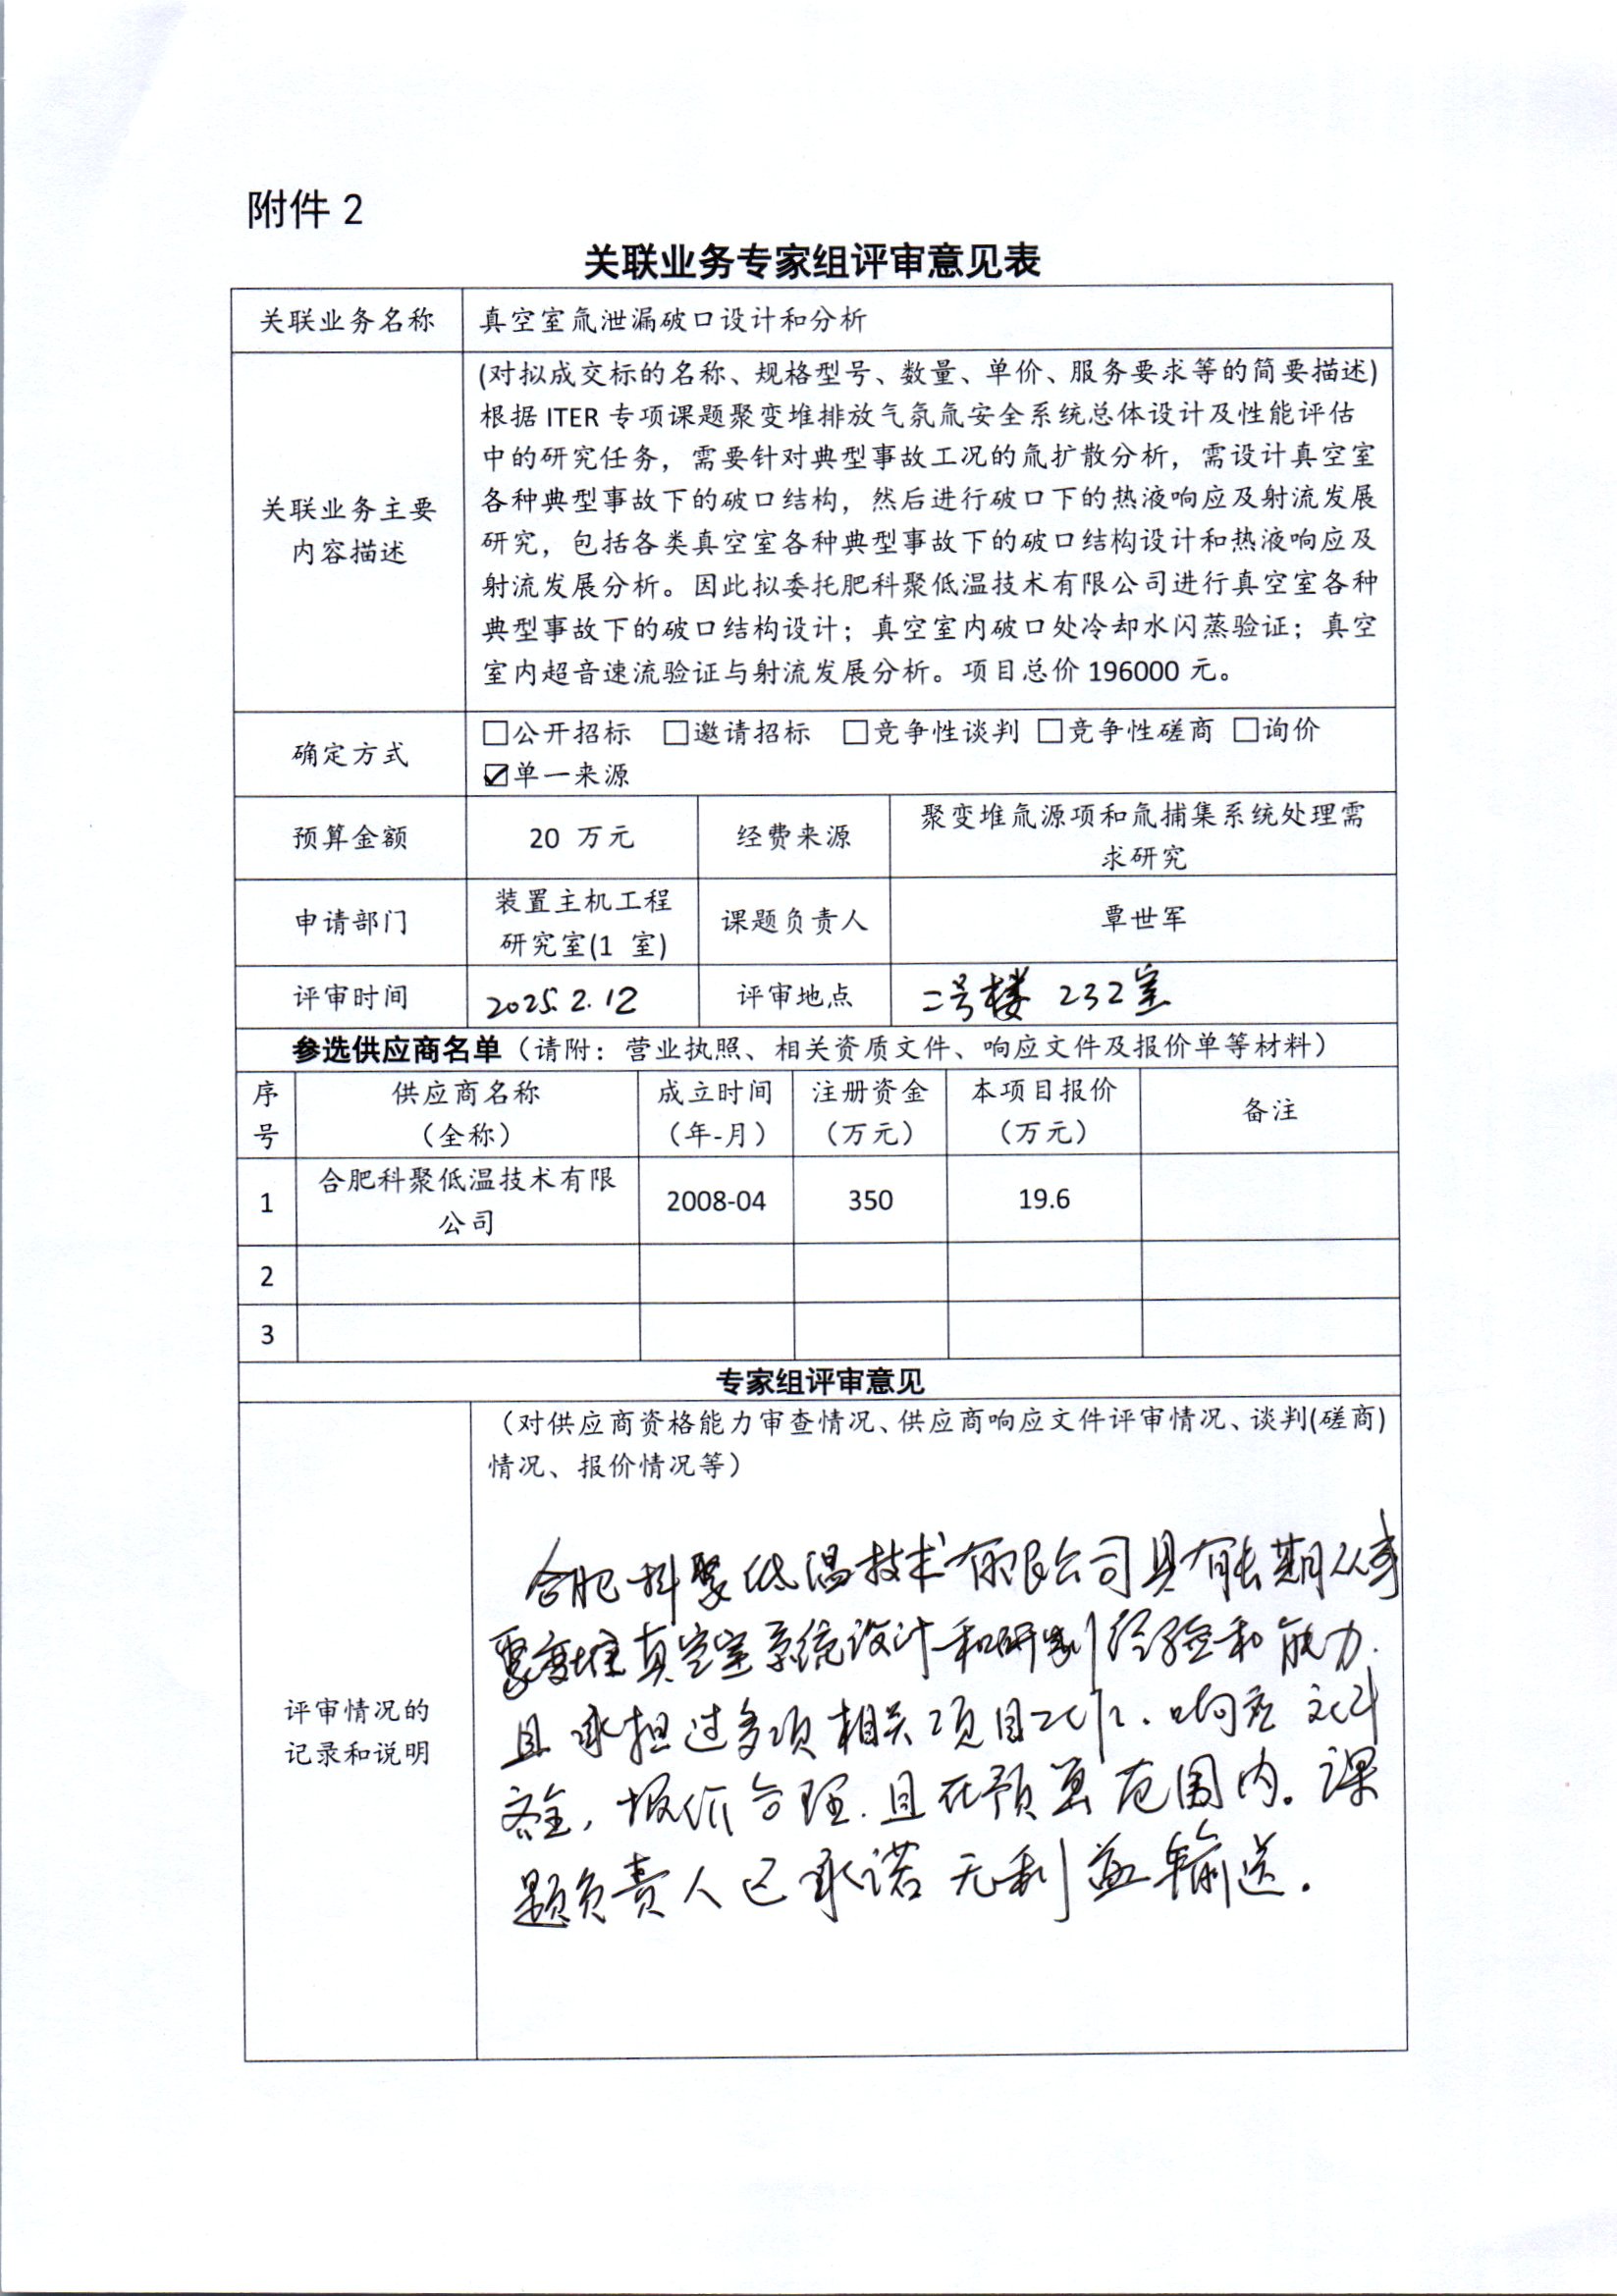 附件 2
关联业务专家组评审意见表
关联业务名称 真空室氚泄漏破口设计和分析
关联业务主要内容描述
(对拟成交标的名称、规格型号、数量、单价、服务要求等的简要描述)
根据 ITER 专项课题聚变堆排放气氛氚安全系统总体设计及性能评估
中的研究任务，需要针对典型事故工况的氚扩散分析，需设计真空室
各种典型事故下的破口结构，然后进行破口下的热液响应及射流发展
研究，包括各类真空室各种典型事故下的破口结构设计和热液响应及
射流发展分析。因此拟委托肥科聚低温技术有限公司进行真空室各种
典型事故下的破口结构设计；真空室内破口处冷却水闪蒸验证；真空
室内超音速流验证与射流发展分析。项目总价 196000 元。
确定方式
□公开招标 □邀请招标 □竞争性谈判 □竞争性磋商 □询价
☑单一来源
预算金额 20 万元 经费来源 聚变堆氚源项和氚捕集系统处理需
求研究
申请部门 装置主机工程
研究室(1 室) 课题负责人 覃世军
评审时间 2025.2.12 评审地点 二号楼 232室
参选供应商名单（请附：营业执照、相关资质文件、响应文件及报价单等材料）
序号 供应商名称（全称） 成立时间（年-月） 注册资金（万元） 本项目报价（万元） 备注
1 合肥科聚低温技术有限公司 2008-04 350 19.6
2
3
专家组评审意见
评审情况的
记录和说明
（对供应商资格能力审查情况、供应商响应文件评审情况、谈判(磋商)
情况、报价情况等）
合肥科聚低温技术有限公司具有长期从事
聚变堆真空室系统设计和研制经验和能力.
且承担过多项相关项目工作. 响应文件
齐全，报价合理. 且在预算范围内。课
题负责人已承诺无利益输送.